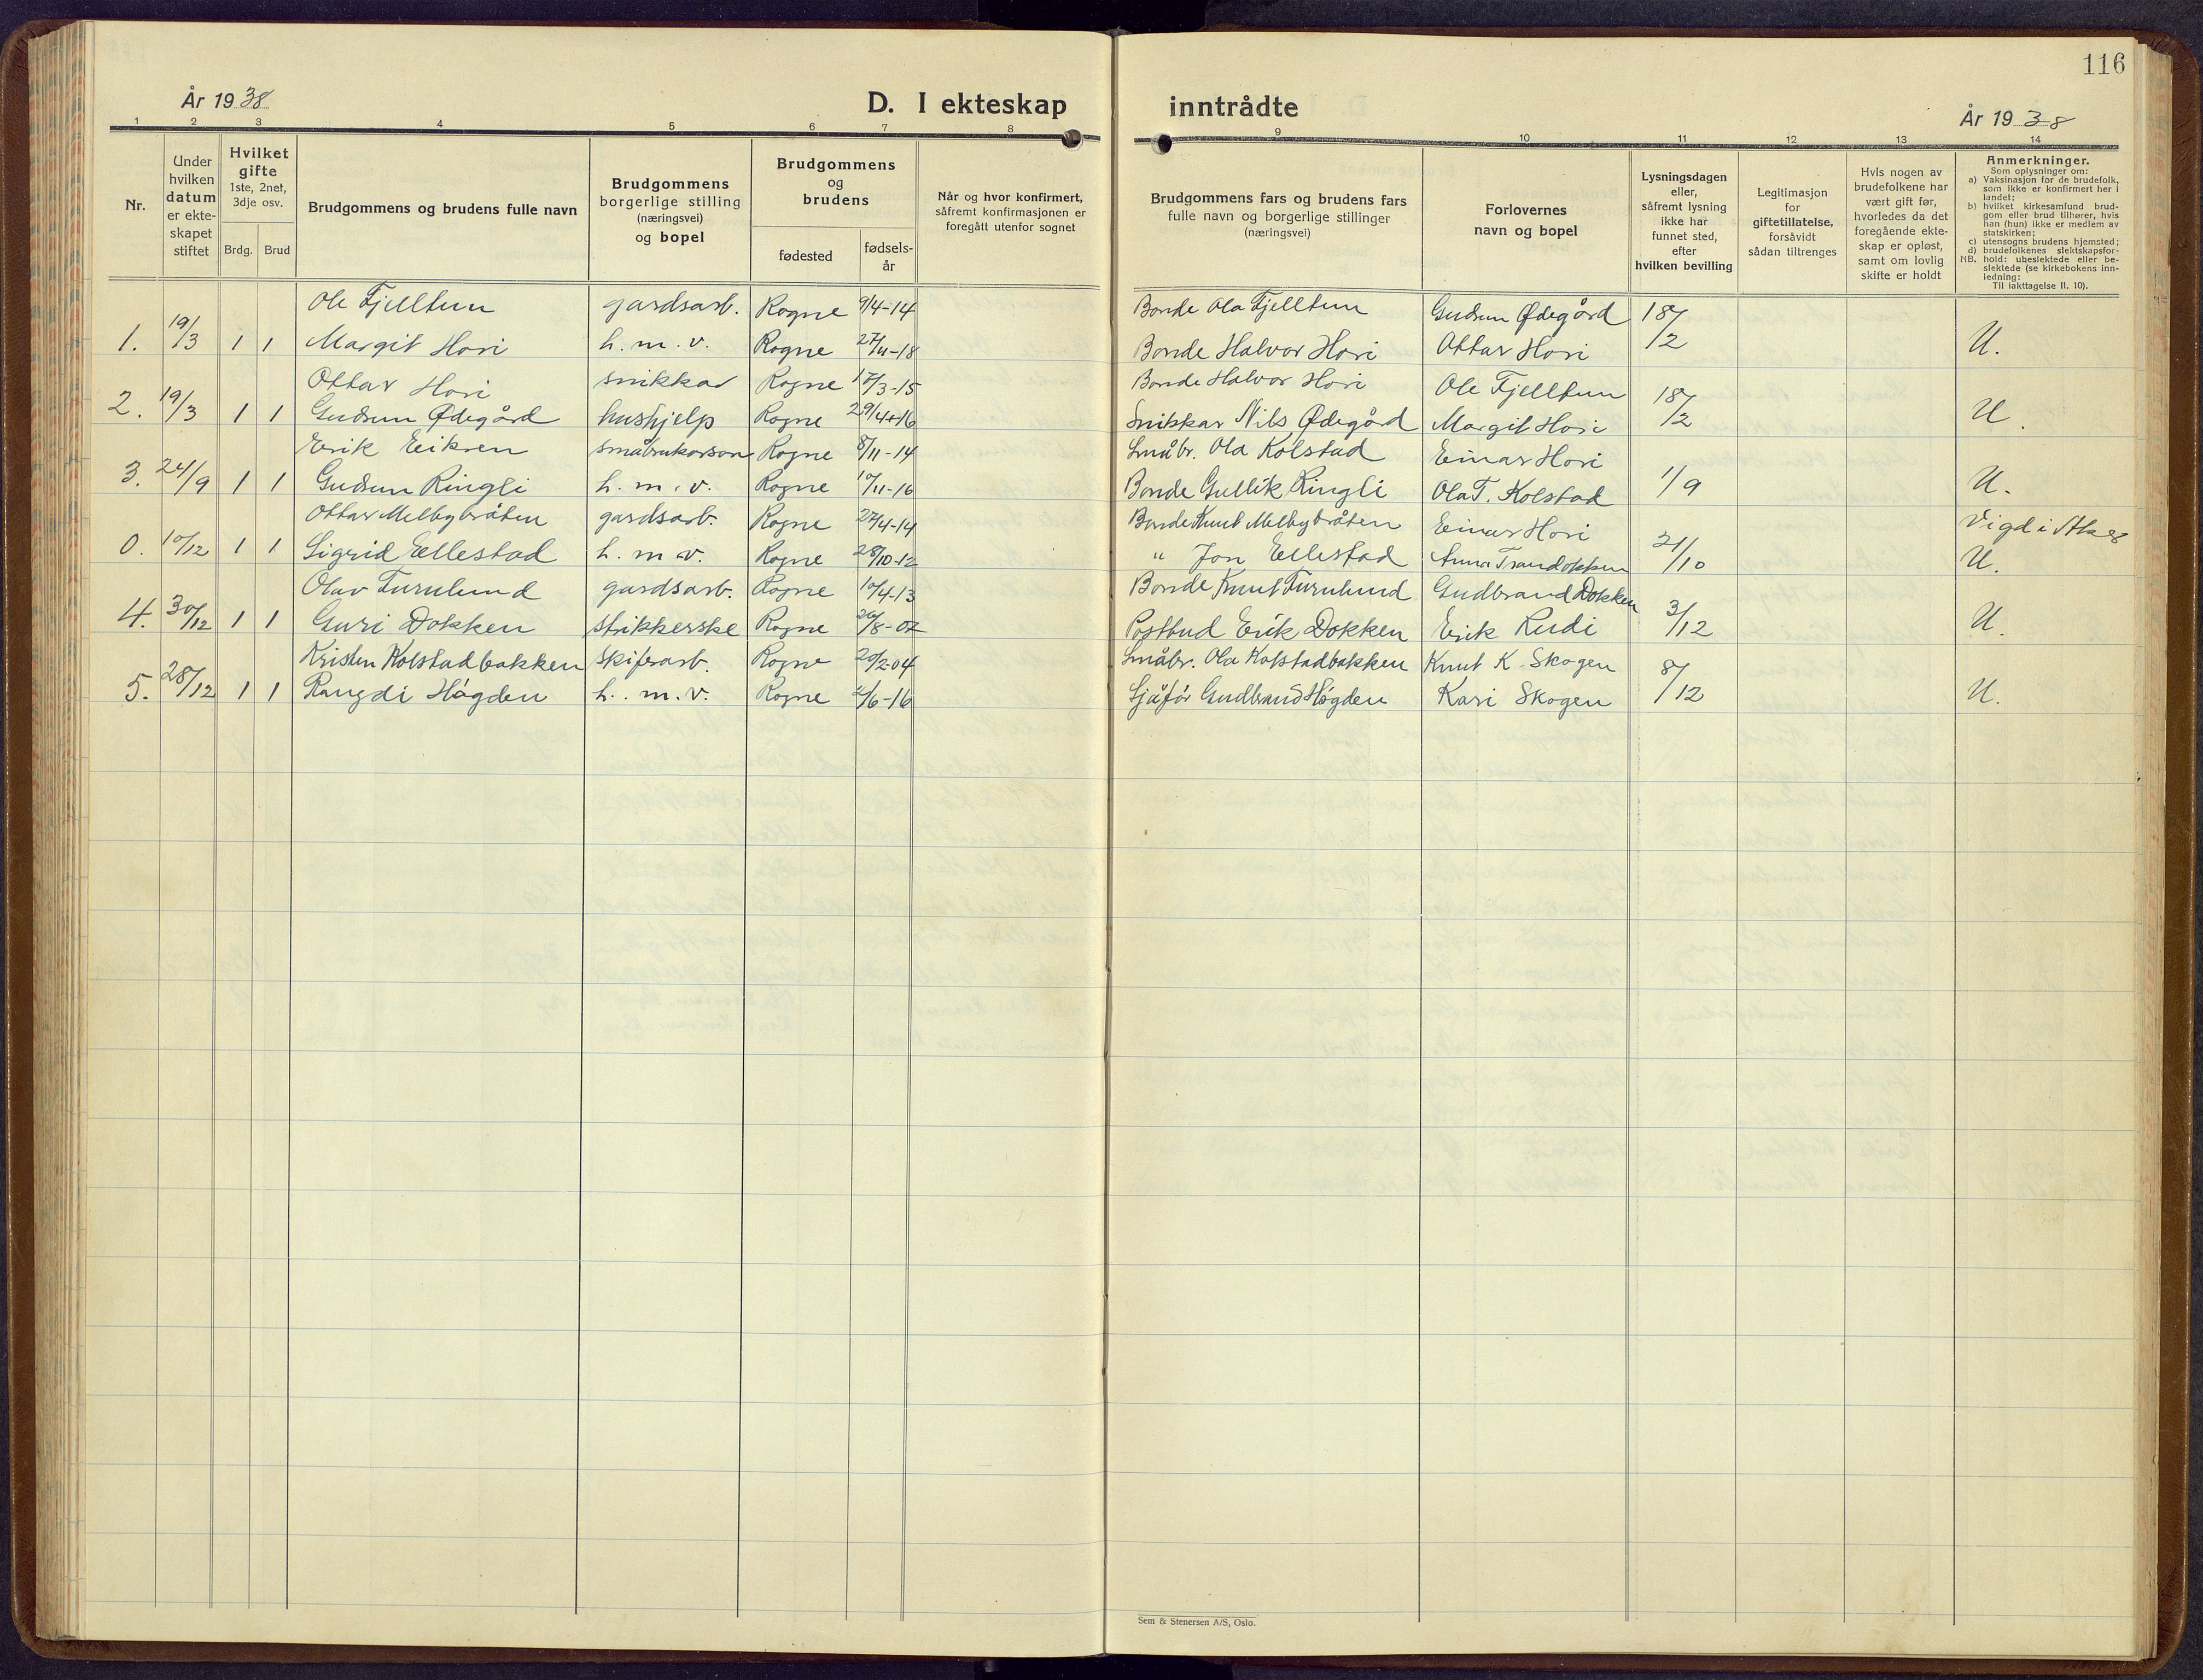 116
År 1938
D. I ekteskap inntrådte
År 1938
1 2 3 4 5 6 7 8 9 10 11 12 13 14
Nr.
Under hvilken datum er ekte-skapet stiftet
Hvilket gifte 1ste, 2net, 3dje osv.
Brdg. Brud
Brudgommens og brudens fulle navn
Brudgommens borgerlige stilling (næringsvei) og bopel
Brudgommens og brudens
fødested
fødsels-år
Når og hvor konfirmert, såfremt konfirmasjonen er foregått utenfor sognet
Brudgommens fars og brudens fars fulle navn og borgerlige stillinger (næringsvei)
Forlovernes navn og bopel
Lysningsdagen eller, såfremt lysning ikke har funnet sted, efter hvilken bevilling
Legitimasjon for giftetillatelse, forsåvidt sådan tiltrenges
Hvis nogen av brudefolkene har vært gift før, hvorledes da det foregående ekte-skap er opløst, samt om lovlig skifte er holdt
Anmerkninger.
Som oplysninger om:
a) Vaksinasjon for de brudefolk, som ikke er konfirmert her i landet;
b) hvilket kirkesamfund brud-gom eller brud tilhører, hvis han (hun) ikke er medlem av statskirken;
c) utensogns brudens hjemsted;
d) brudefolkenes slektskapsfor-hold: ubeslektede eller be-slektede (se kirkebokens inn-ledning:
NB.
Til iakttagelse II. 10).
Ole Fjelltun gardsarb. Rogne 9/4-14 Bonde Ola Fjelltun Gudrun Ødegård 18/2
1. 19/3 1 1 Margit Hovi h. m. v. Rogne 27/11-18 Bonde Halvor Hovi Ottar Hovi U.
Ottar Hovi snikkar Rogne 17/3-15 Bonde Halvor Hovi Ole Fjelltun 18/2
2. 19/3 1 1 Gudrun Ødegård hushjelp Rogne 29/4-16 Snikkar Nils Ødegård Margit Hovi U.
Erik Eriksen småbrukarson Rogne 8/11-14 Småbr. Ola Kolstad Einar Hovi
3. 24/9 1 1 Gudrun Ringli h. m. v. Rogne 10/11-16 Bonde Gullik Ringli Ola T. Kolstad 1/9 U.
Ottar Melbybråten gardsarb. Rogne 27/4-14 Bonde Knut Melbybråten Einar Hovi 21/10 Vigd i Aker
0. 10/12 1 1 Sigrid Ellestad h. m. v. Rogne 28/10-12 " Jon Ellestad Anna Trandokken U.
Olav Furulund gardsarb. Rogne 10/4-13 Bonde Knut Furulund Gudbrand Dokken 3/12
4. 30/12 1 1 Guri Dokken strikkerske Rogne 26/8-07 Postbud Erik Dokken Erik Rudi U.
Kristen Kolstadbakken skiferarb. Rogne 20/2-04 Småbr. Ola Kolstadbakken Knut K. Skogen 8/12
5. 28/12 1 1 Rangdi Høgden h. m. v. Rogne 2/6-16 Sjåfør Gudbrand Høgden Kari Skogen U.
Sem & Stenersen A/S, Oslo.